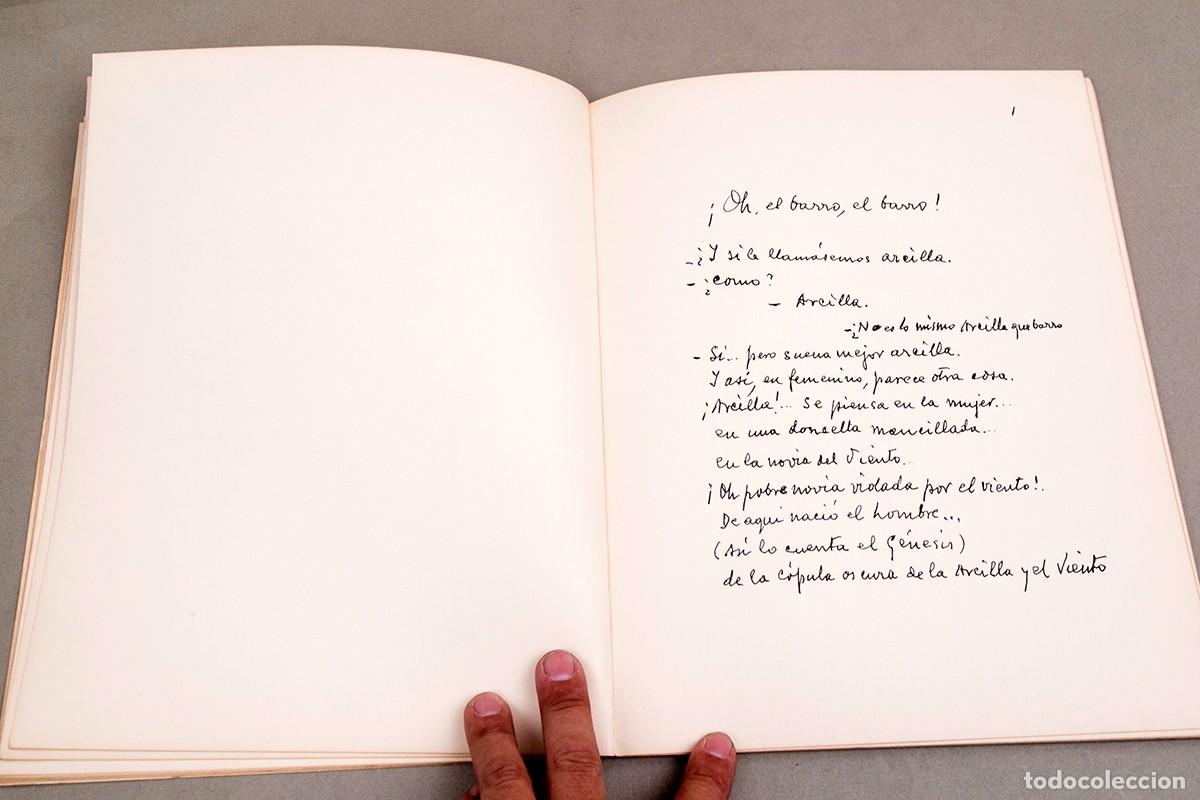 1
¡Oh, el barro, el barro!
-¿Y si le llamásemos arcilla.
-¿como?
- Arcilla.
-¿No es lo mismo Arcilla que barro
- Si... pero suena mejor arcilla.
Y así, en femenino, parece otra cosa.
¡Arcilla!... Se piensa en la mujer...
en una doncella mancillada...
en la novia del Viento...
¡Oh pobre novia violada por el viento!.
De aqui nació el hombre...
(Así lo cuenta el Génesis)
de la cópula oscura de la Arcilla y el Viento
todocoleccion